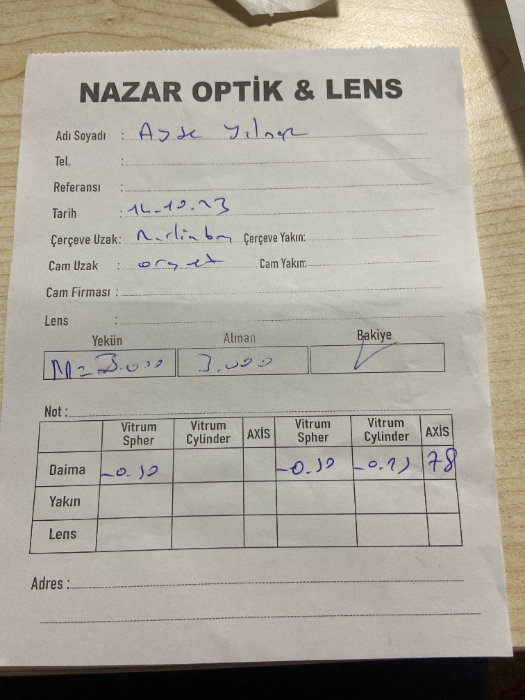 NAZAR OPTİK & LENS
Adı Soyadı : Ayşe Yılmaz
Tel. :
Referansı :
Tarih : 14.10.23
Çerçeve Uzak: Çerçeve Yakın:
Cam Uzak : Cam Yakın:
Cam Firması :
Lens :
Yekün Alınan Bakiye
3.000 3.000
Not :
Vitrum Spher Vitrum Cylinder AXİS Vitrum Spher Vitrum Cylinder AXİS
Daima -0.50 -0.50 78
Yakın
Lens
Adres :